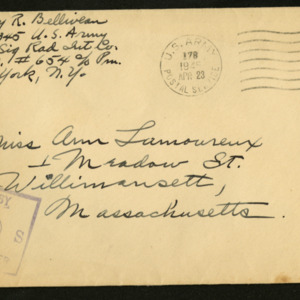 y R. Belliveau
345 U.S. Army
Sig Rad Int Co.
# 654 c/o Pm.
York, N.Y.
U.S. ARMY
178
APR 23
POSTAL SERVICE
Miss Ann Lamoureux
1 Meadow St.
Willimansett,
Massachusetts.
S